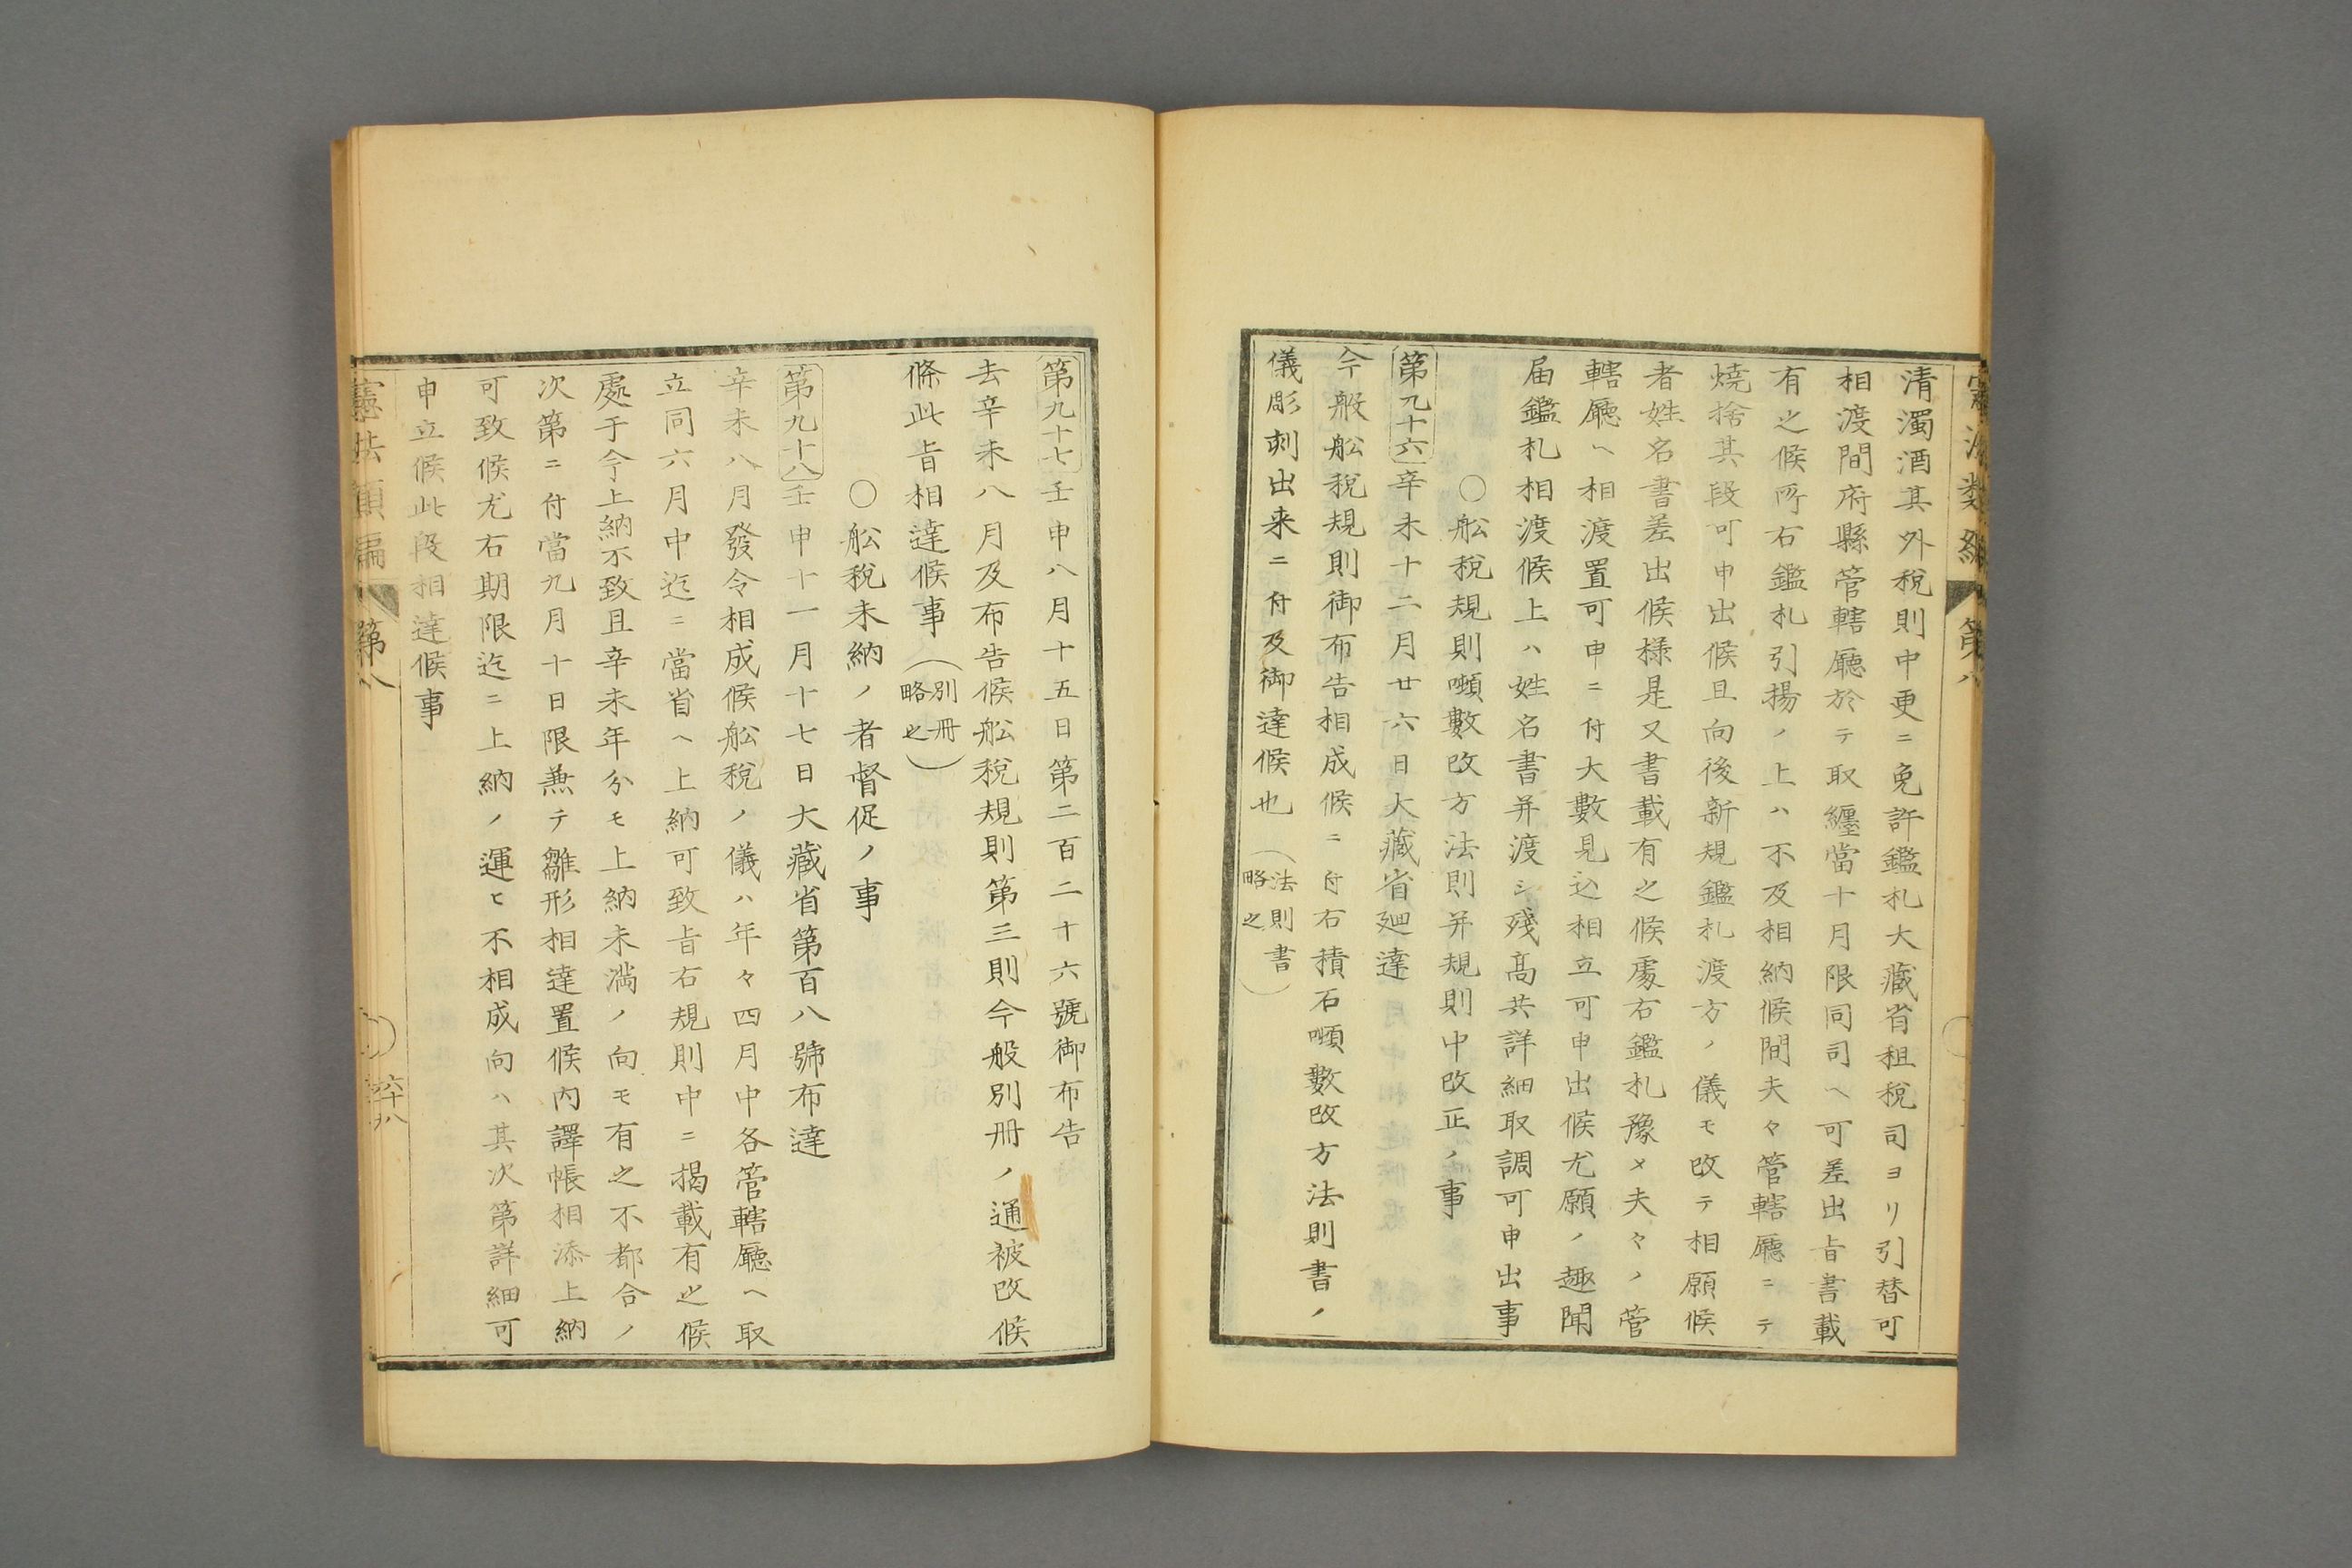 清濁酒其外税則中更ニ免許鑑札大藏省租税司ヨリ引替可
相渡間府縣管轄廳於テ取纒當十月限同司ヘ可差出㫖書載
有之候所右鑑札引揚ノ上ハ不及相納候間夫々管轄廳ニテ
焼捨其段可申出候且向後新規鑑札渡方ノ儀モ改テ相願候
者姓名書差出候様是又書載有之候處右鑑札豫メ夫々ノ管
轄廳ヘ相渡置可申ニ付大數見込相立可申出候尤願ノ趣聞
届鑑札相渡候上ハ姓名書并渡シ残高共詳細取調可申出事
〇舩税規則噸數改方法則并規則中改正ノ事
第九十六 辛未十二月廿六日大藏省廻達
今般舩税規則御布告相成候ニ付右積石噸數改方法則書ノ
儀彫刻出来ニ付及御達候也（法則書略之）
第九十七 壬申八月十五日第二百二十六號御布告
去辛未八月及布告候舩税規則第三則今般別册ノ通被改候
條此㫖相達候事（別冊略之）
〇舩税未納ノ者督促ノ事
第九十八 壬申十一月十七日大藏省第百八號布達
辛未八月發令相成候舩税ノ儀ハ年々四月中各管轄廳ヘ取
立同六月中迄ニ當省ヘ上納可致㫖右規則中ニ揭載有之候
處于今上納不致且辛未年分モ上納未満ノ向モ有之不都合ノ
次第ニ付當九月十日限兼テ雛形相達置候内譯帳相添上納
可致候尤右期限迄ニ上納ノ運ヒ不相成向ハ其次第詳細可
申立候此段相達候事
憲法類編 第八
六十八